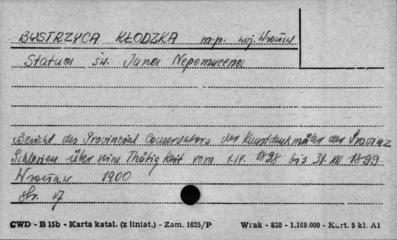 BYSTRZYCA KŁODZKA m.p. woj. Wrocław
Statua św. Jana Nepomucena
Bericht des Provinzial Conservators der Kunstdenkmäler der Provinz
Schlesien über seine Thätigkeit vom 1.IV. 1898 bis 31. XII 1899
Wrocław 1900
Str. 17
CWD - B 15b - Karta katal. (z liniat.) - Zam. 1625/P Wrak - 830 - 1.169.000 - Kart. 5 kl. A1